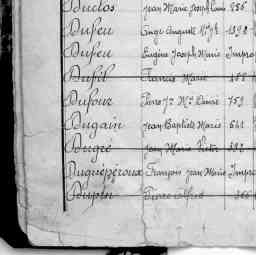 Duclos Jean Marie Joseph Louis 856
Dufeu Ange Auguste 1398
Dufeu Eugène Joseph Marie Impro
Dufil Francis Marie 468
Dufour Pierre 759
Dugain Jean Baptiste Marie 641
Dugré Jean Marie Victor 892
Duguépéroux François Jean Marie Impro
Dupin Pierre 366